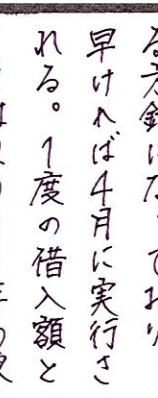 る方針になっており
早ければ4月に実行さ
れる。1度の借入額と